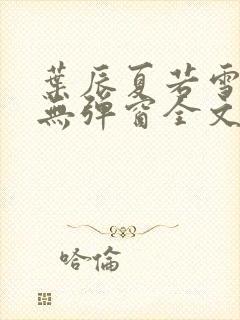 葉辰夏若雪
無彈窗全文
哈倫